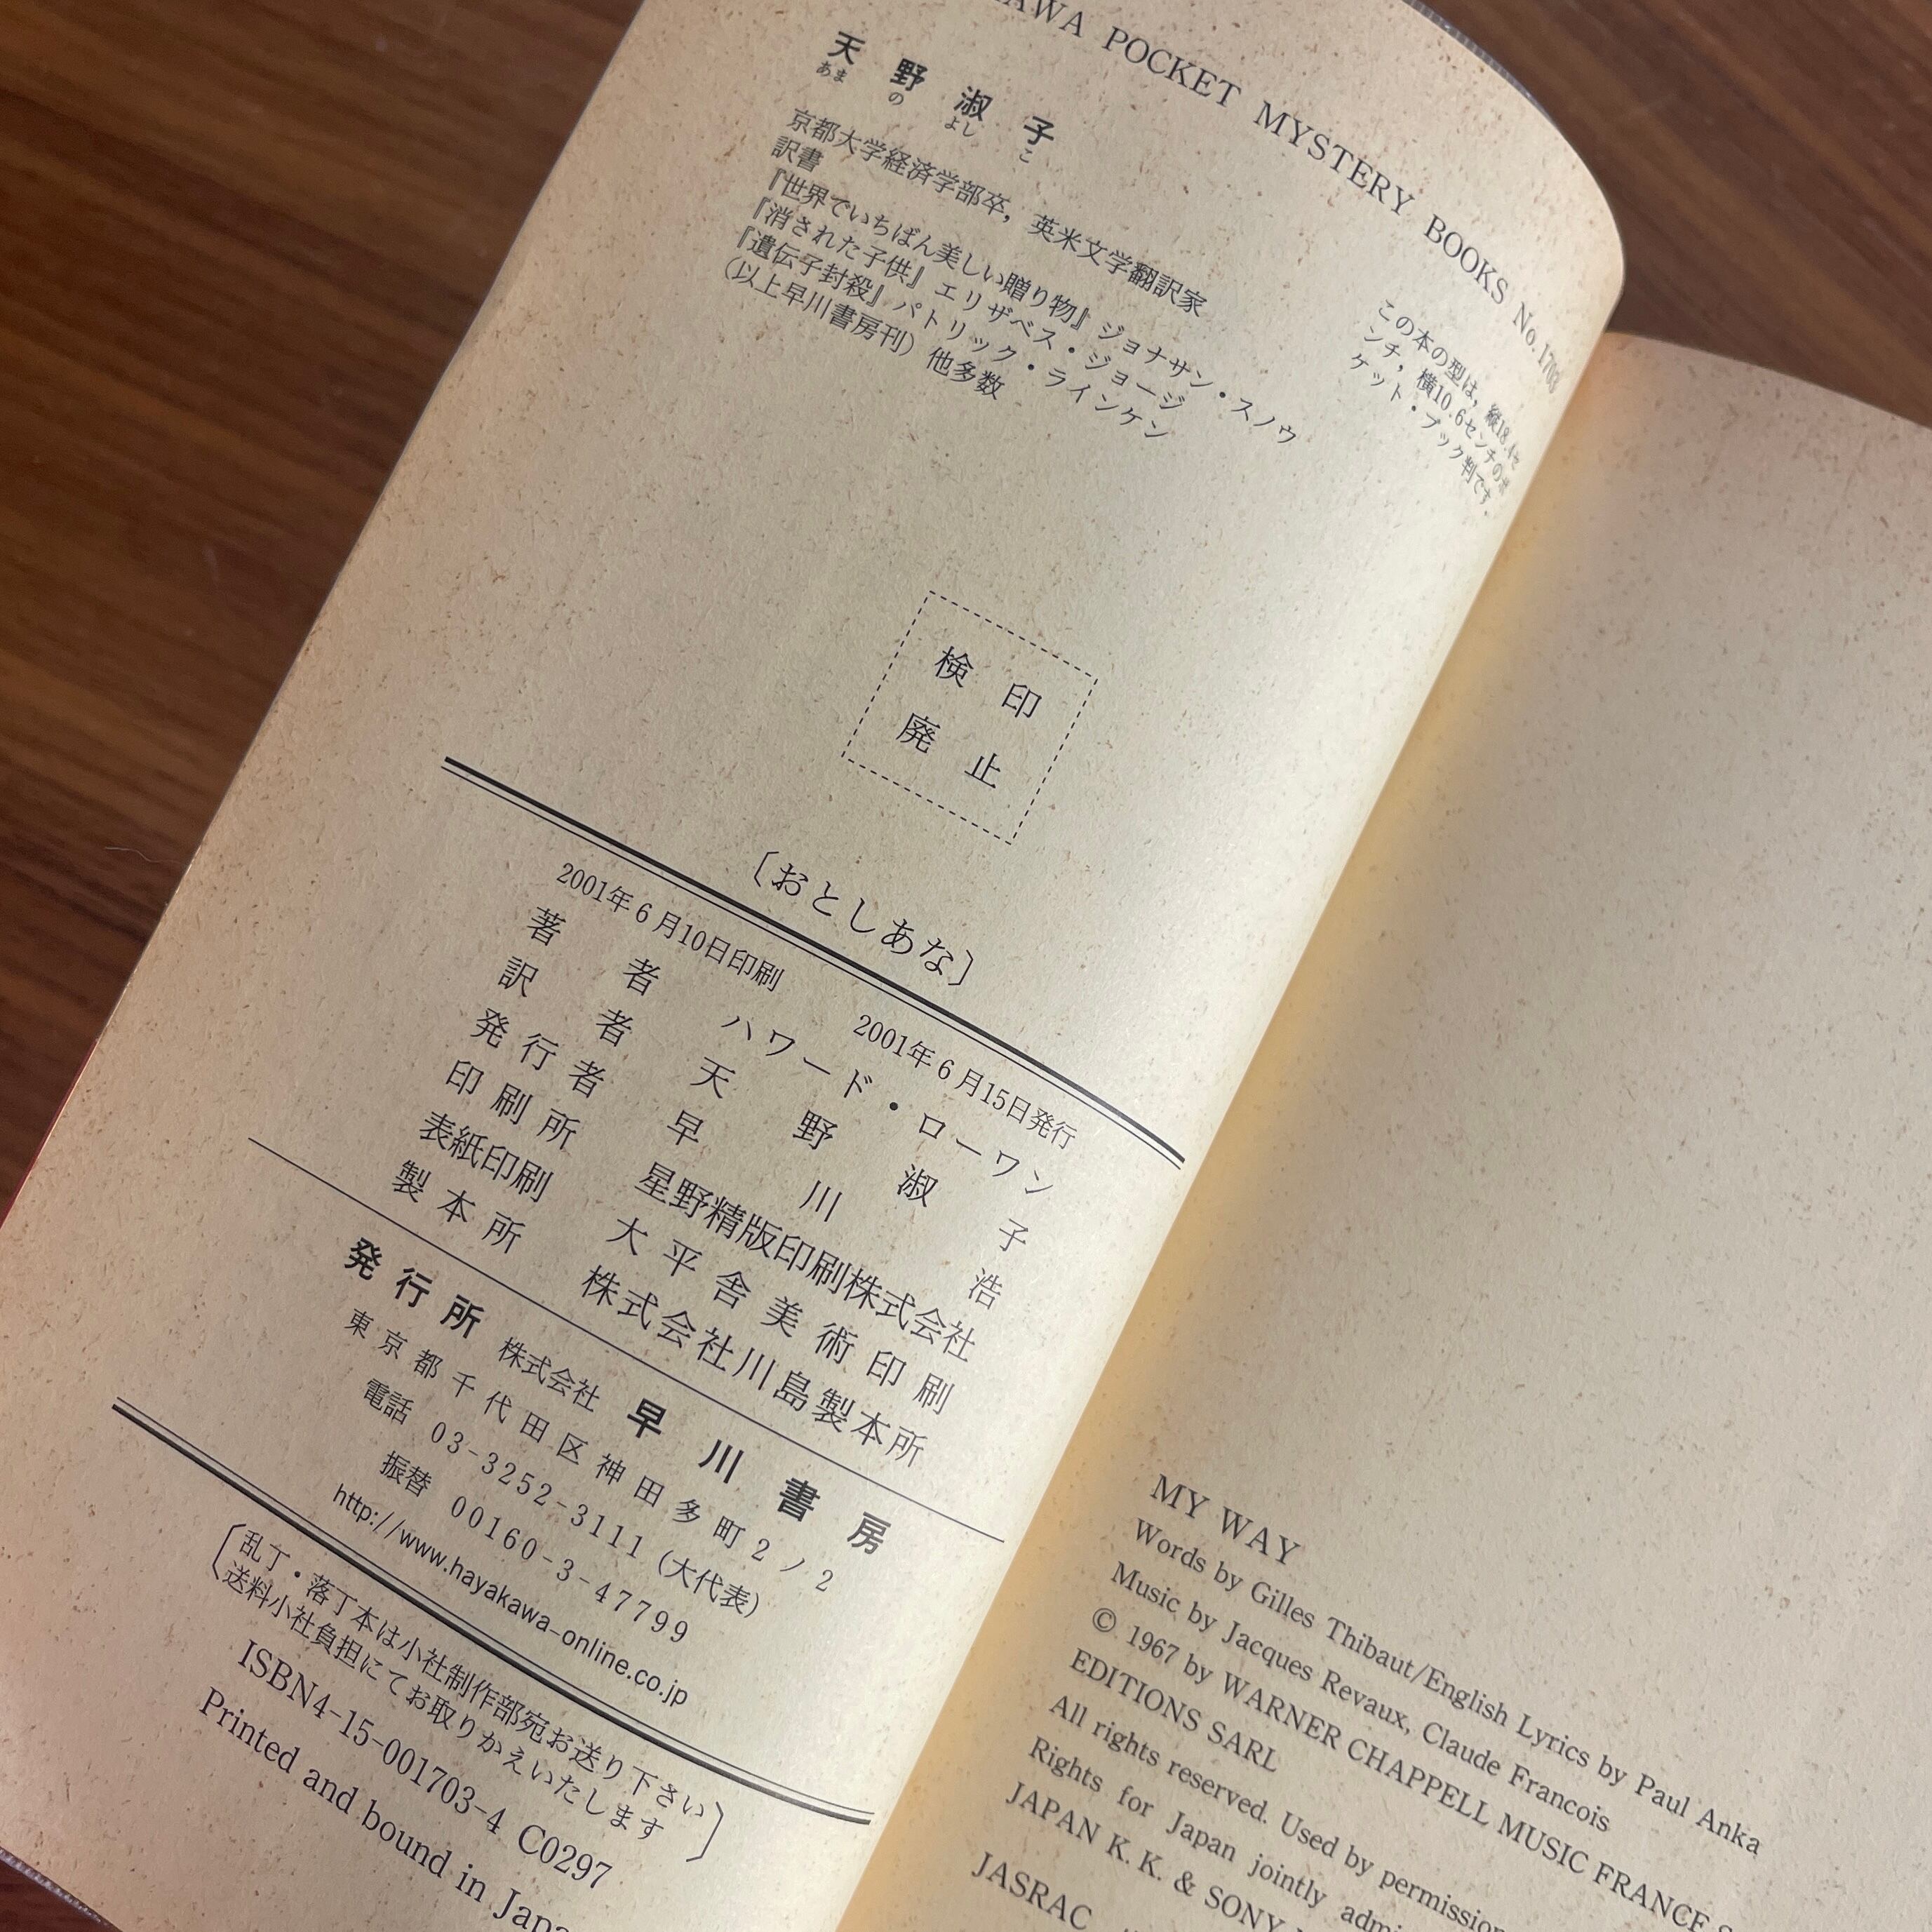 POCKET MYSTERY BOOKS No. 1703
天野淑子
あまのよしこ
京都大学経済学部卒，英米文学翻訳家
訳書
『世界でいちばん美しい贈り物』ジョナサン・スノウ
『消された子供』エリザベス・ジョージ
『遺伝子封殺』パトリック・ラインケン
（以上早川書房刊）他多数
この本の型は，縦18.4セ
ンチ，横10.6センチのポ
ケット・ブック判です．
検印
廃止
〔おとしあな〕
2001年6月10日印刷 2001年6月15日発行
著者 ハワード・ローワン
訳者 天野淑子
発行者 早川浩
印刷所 星野精版印刷株式会社
表紙印刷 大平舎美術印刷
製本所 株式会社川島製本所
発行所 株式会社 早川書房
東京都千代田区神田多町2ノ2
電話 03-3252-3111（大代表）
振替 00160-3-47799
http://www.hayakawa-online.co.jp
〔乱丁・落丁本は小社制作部宛お送り下さい
送料小社負担にてお取りかえいたします〕
ISBN4-15-001703-4 C0297
Printed and bound in
MY WAY
Words by Gilles Thibaut/English Lyrics by Paul Anka
Music by Jacques Revaux, Claude Francois
© 1967 by WARNER CHAPPELL MUSIC FRANCE
EDITIONS SARL
All rights reserved. Used by permission
Rights for Japan jointly
JAPAN K. K. & SONY
JASRAC